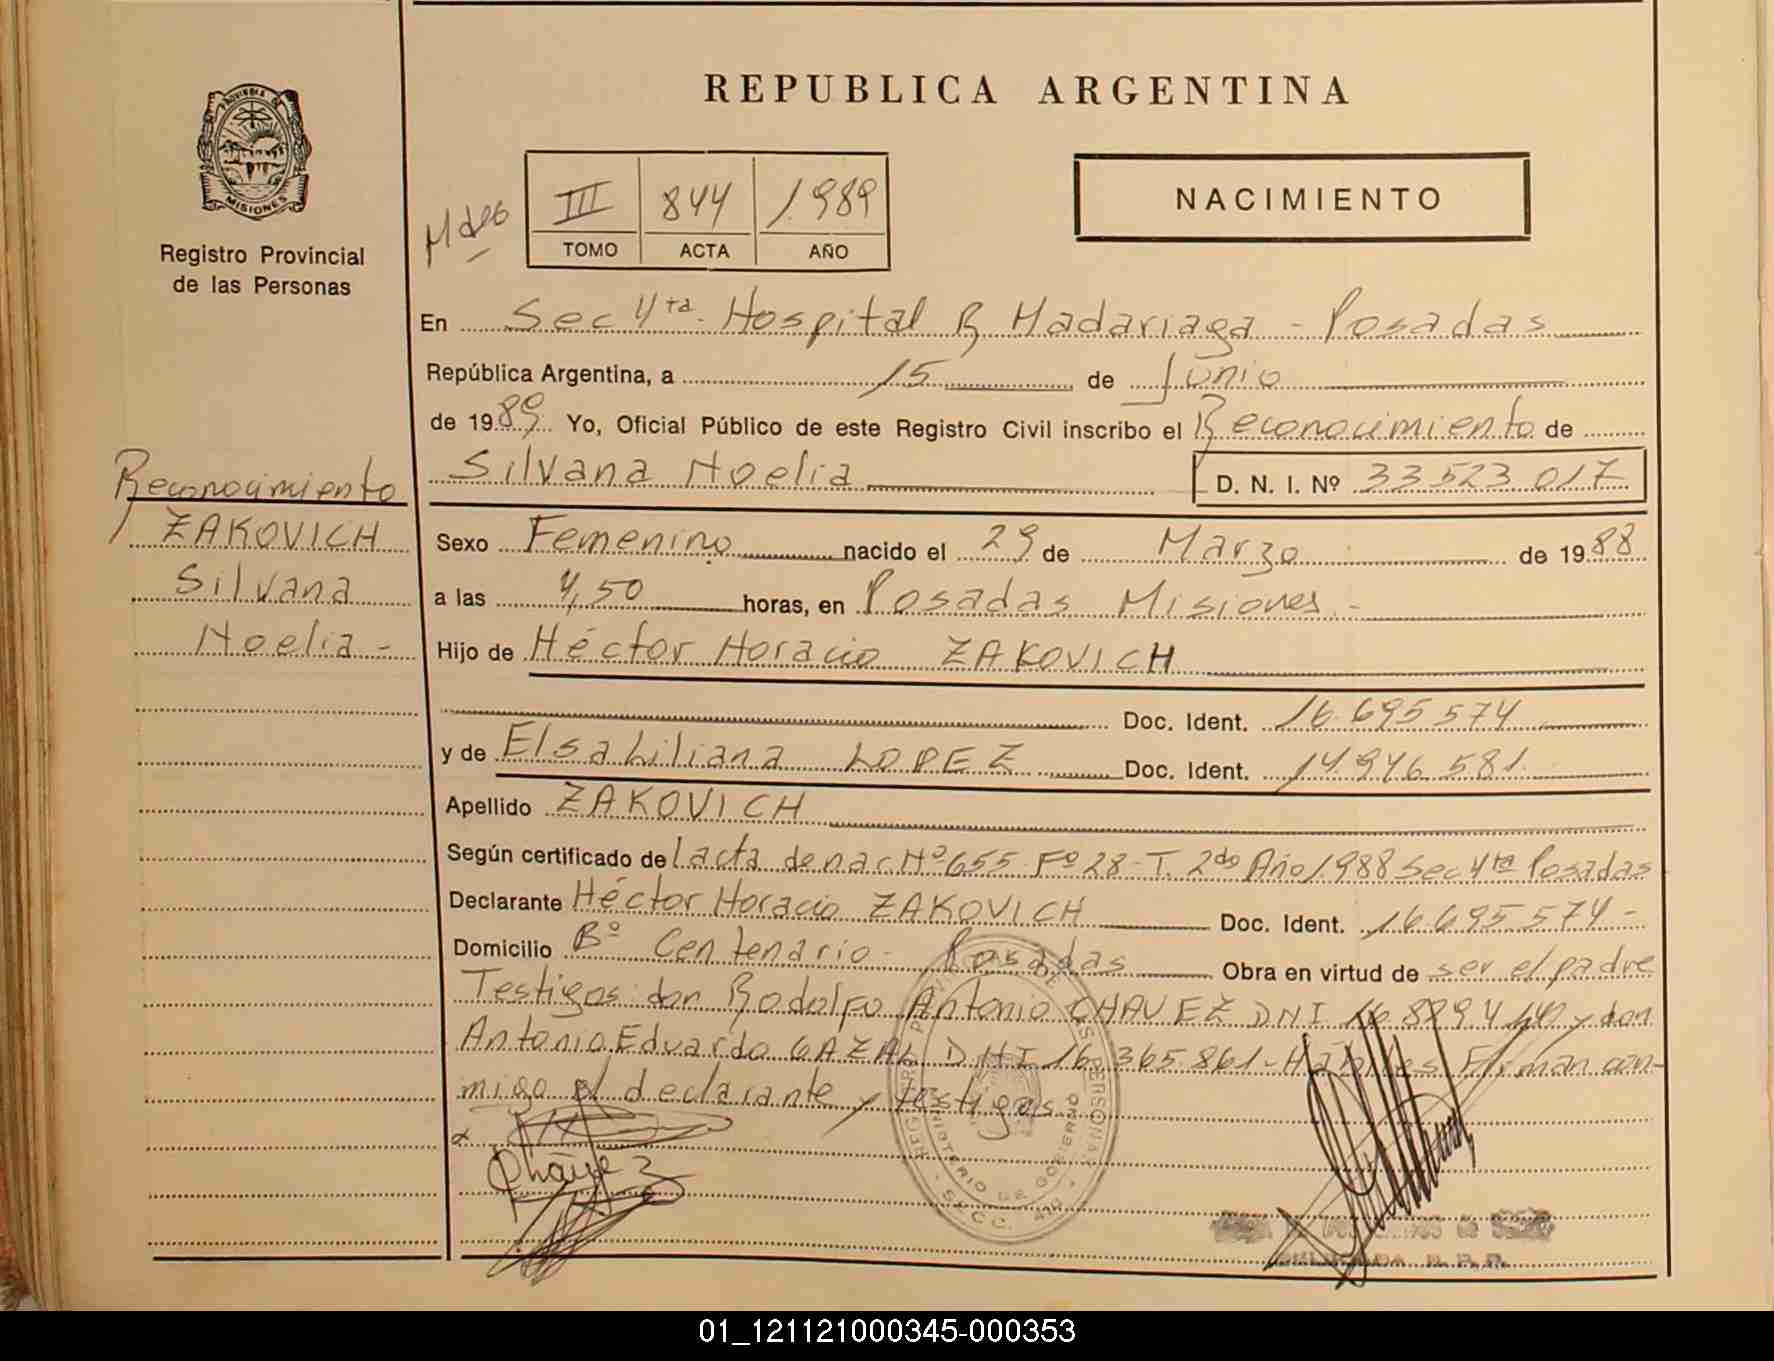 PROVINCIA DE
MISIONES
Registro Provincial
de las Personas
REPUBLICA ARGENTINA
III 844 1.989
TOMO ACTA AÑO
NACIMIENTO
En Sec 4ta. Hospital R Madariaga - Posadas
República Argentina, a 15 de Junio
de 1989. Yo, Oficial Público de este Registro Civil inscribo el Reconocimiento de
Silvana Noelia D. N. I. Nº 33.523.017
Reconocimiento
ZAKOVICH
Silvana
Noelia -
Sexo Femenino nacido el 29 de Marzo de 1988
a las 4,50 horas, en Posadas Misiones -
Hijo de Héctor Horacio ZAKOVICH
Doc. Ident. 16.695.574
y de Elsa Liliana LOPEZ Doc. Ident. 14.946.581.
Apellido ZAKOVICH
Según certificado de l acta de nac. Nº 655 Fº 28 - T. 2do Año 1.988 Sec 4ta Posadas
Declarante Héctor Horacio ZAKOVICH Doc. Ident. 16.695.574 -
Domicilio Bº Centenario - Posadas Obra en virtud de ser el padre
Testigos don Rodolfo Antonio CHAVEZ DNI y don
Antonio Eduardo GAZAL DNI 16.365.861 - Hábiles Firman con-
migo el declarante y testigos.
Chávez
MINISTERIO DE GOBIERNO
SECC. 4ta
01_121121000345-000353